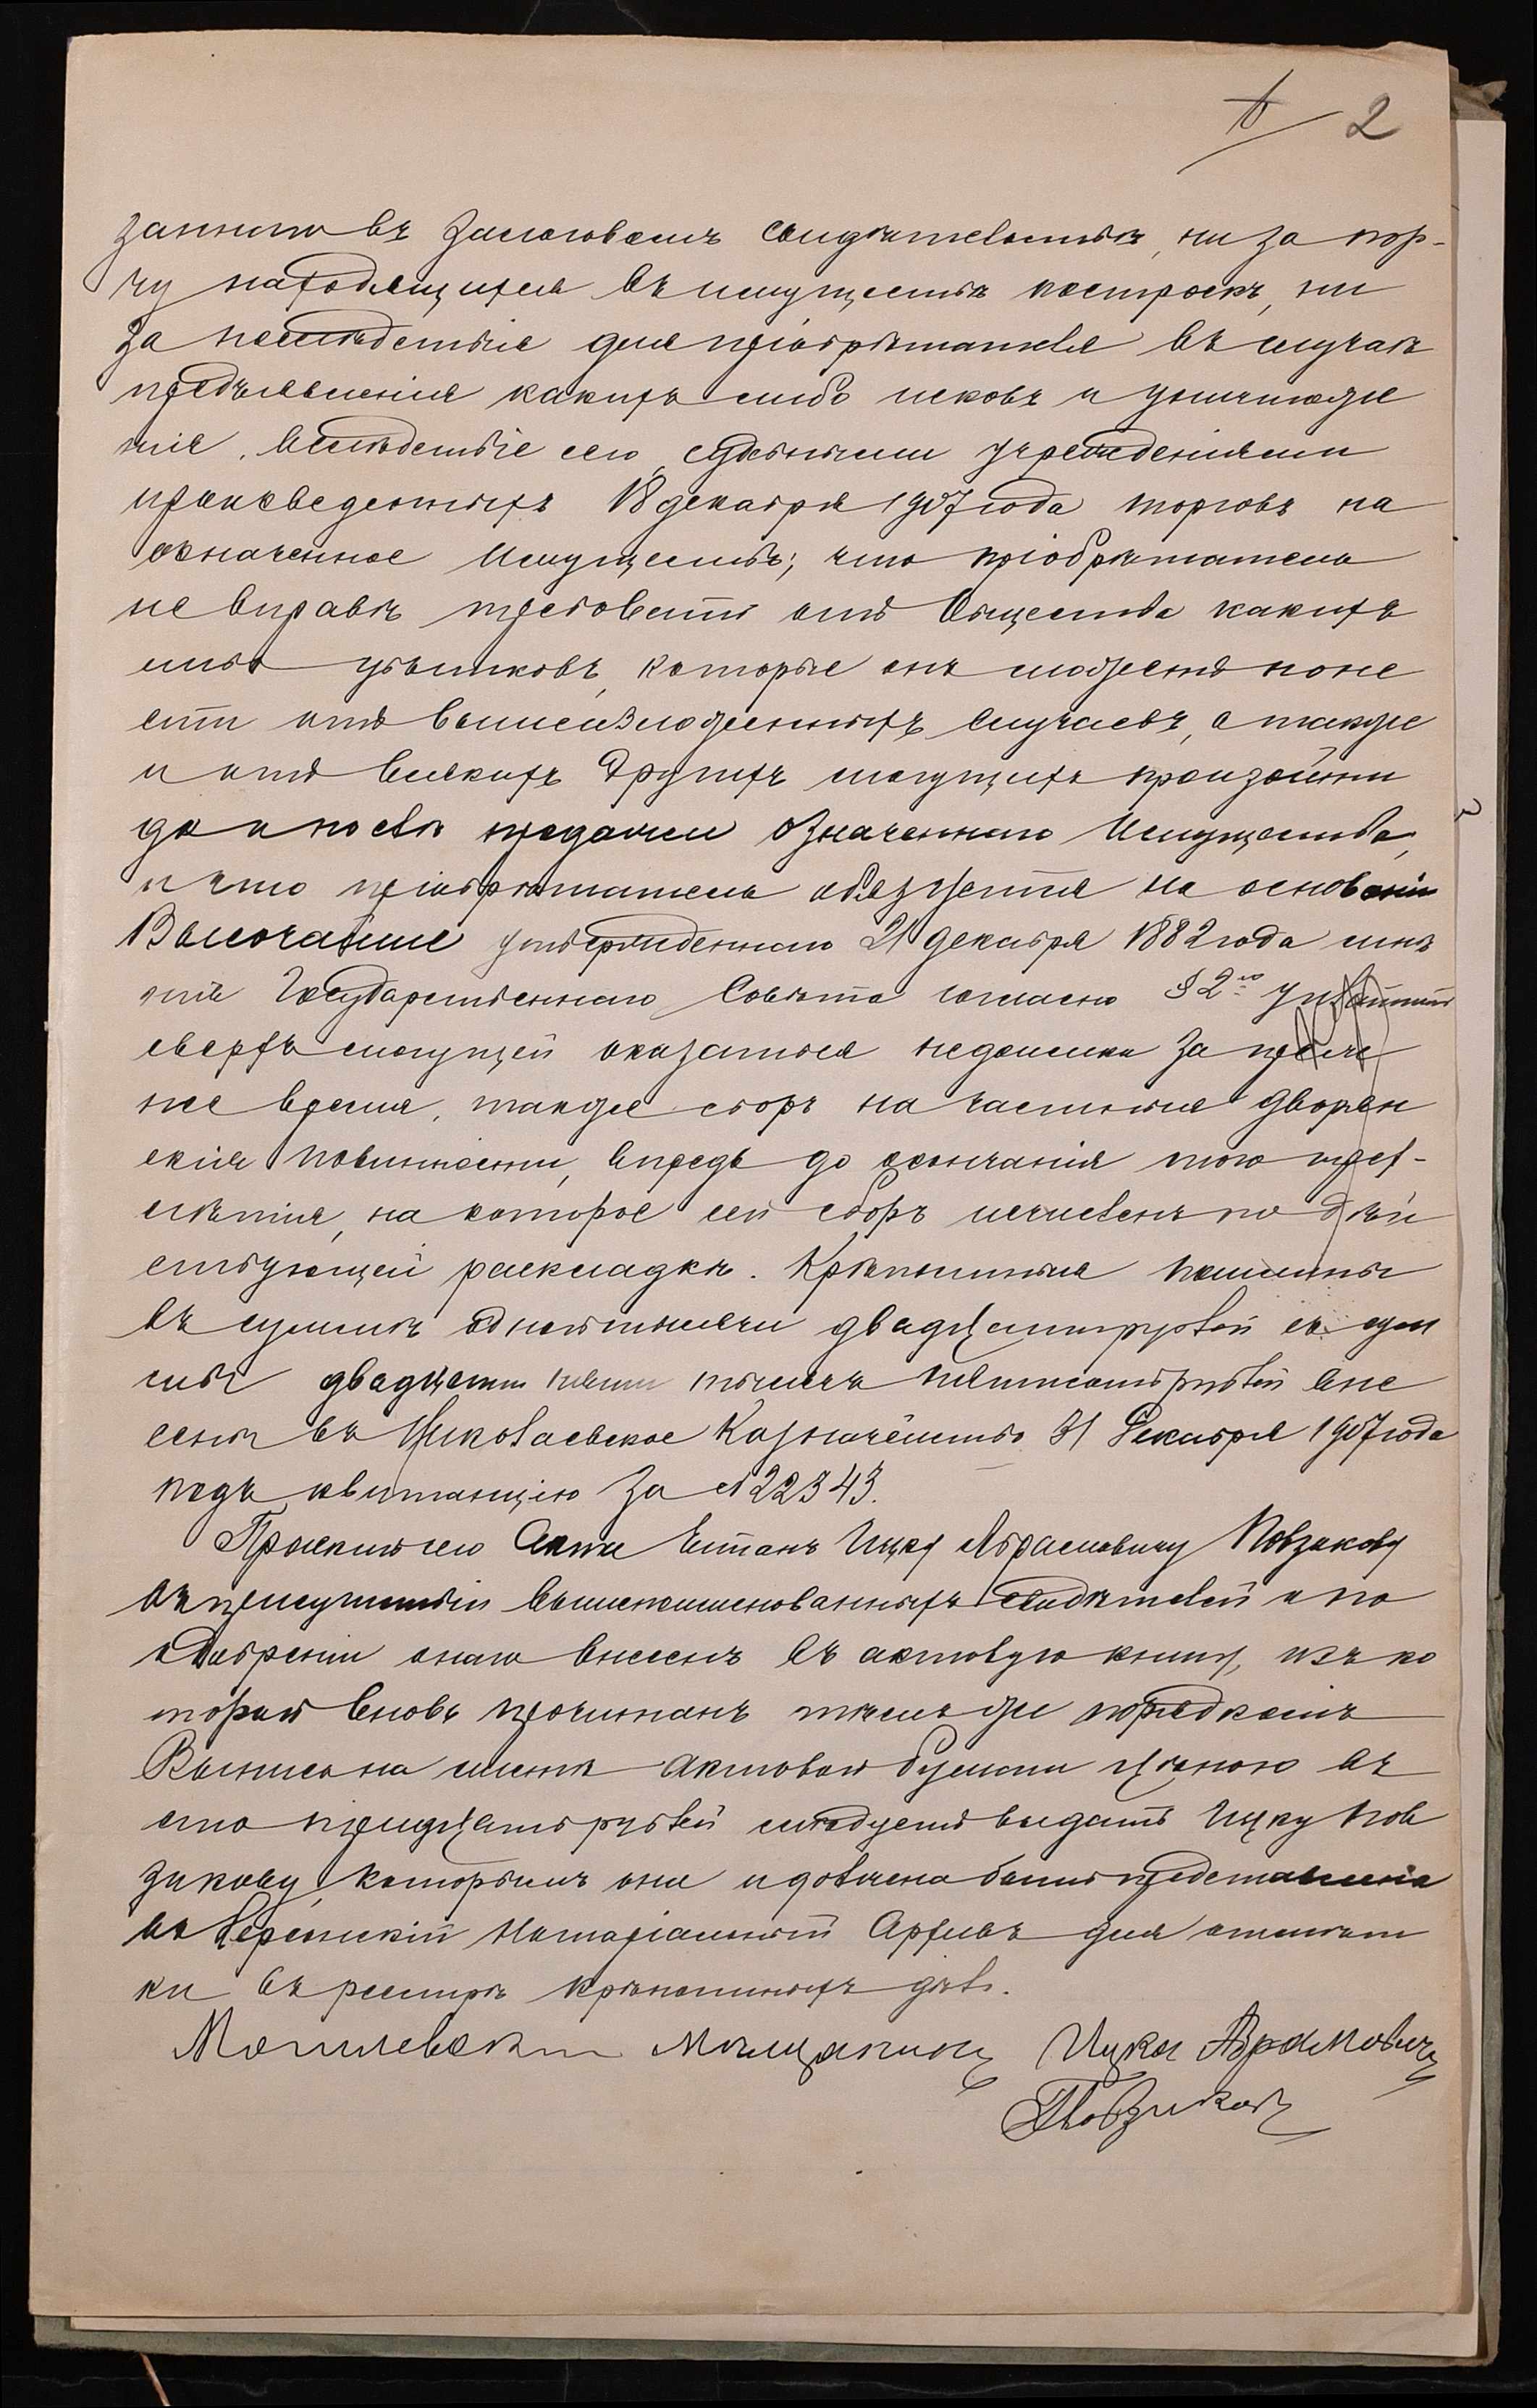 2
заннаго въ Залоговомъ Свидѣтельствѣ, ни за пор-
чу находящихся въ имуществѣ построекъ, ни
за послѣдствія для пріобрѣтателя въ случаѣ
предъявленія какихъ либо исковъ и уничтоже
нія, вслѣдствіе сего, судебными учрежденіями
произведенныхъ 18 декабря 1907 года торговъ на
означенное имущество; что пріобрѣтатель
не вправѣ требовать отъ Общества какихъ
либо убытковъ, которые онъ можетъ поне
сти отъ вышеизложенныхъ случаевъ, а также
и отъ всякихъ другихъ могущихъ произойти
до и послѣ продажи означеннаго Имущества,
и что пріобрѣтатель обязуется на основаніи
Высочайше утвержденнаго 21 декабря 1882 года мнѣ
нія Государственнаго Совѣта согласно § 2го уплатить
сверхъ могущей оказаться недоимки за преж
нее время, также сборъ на частныя дворян
скія повинности, впредь до окончанія того трех-
лѣтія, на которое сей сборъ исчисленъ по дѣй
ствующей раскладкѣ. Крѣпостныя пошлины
въ суммѣ одной тысячи двадцати рублей съ сум
мы двадцати пяти тысячъ пятисотъ рублей вне
сены въ Николаевское Казначейство 31 Декабря 1907 года
подъ квитанцію за № 22343.
Проектъ сего Акта читанъ Ицку Абрамовичу Повзикову
въ присутствіи вышепоименованныхъ свидѣтелей и по
одобреніи онаго внесенъ въ актовую книгу, изъ ко
торой вновь прочитанъ тѣмъ же порядкомъ
Выпись на листѣ актовой бумаги цѣною въ
сто тридцать рублей слѣдуетъ выдать Ицку Пов
зикову, которымъ она и должна быть представлена
въ Херсонскій Нотаріальный Архивъ для отмѣт
ки въ реестрѣ крѣпостныхъ дѣлъ.
Могилевскій Мѣщанинъ Ицка Абрамовичъ
Повзиковъ